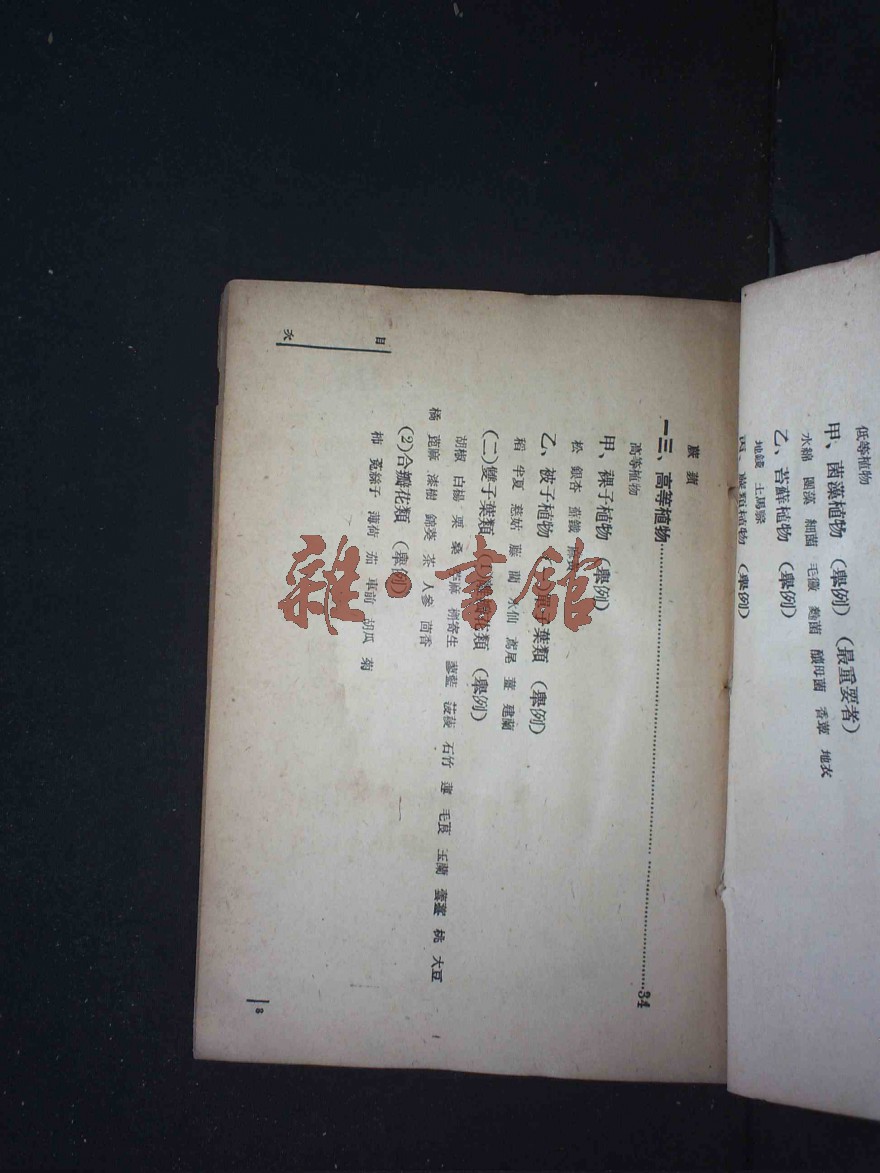 低等植物
甲、菌藻植物 (舉例) (最重要者)
水綿 團藻 細菌 毛黴 麴菌 釀母菌 香蕈 地衣
乙、苔蘚植物 (舉例)
地錢 土馬騣
丙、蕨類植物 (舉例)
目次
蕨 蘋
一三、高等植物 34
高等植物
甲、裸子植物 (舉例)
松 銀杏 蘇鐵
乙、被子植物 子葉類 (舉例)
稻 半夏 慈姑 藤 蘭 水仙 鳶尾 薑 建蘭
(二)雙子葉類 (1) 花類 (舉例)
胡椒 白楊 栗 桑 麻 槲寄生 蓼藍 菠薐 石竹 蓮 毛茛 玉蘭 蕓薹 桃 大豆
橘 蓖麻 漆樹 錦葵 茶 人參 茴香
(2)合瓣花類 (舉例)
柿 菟絲子 薄荷 茄 車前 胡瓜 菊
8
雜·書館